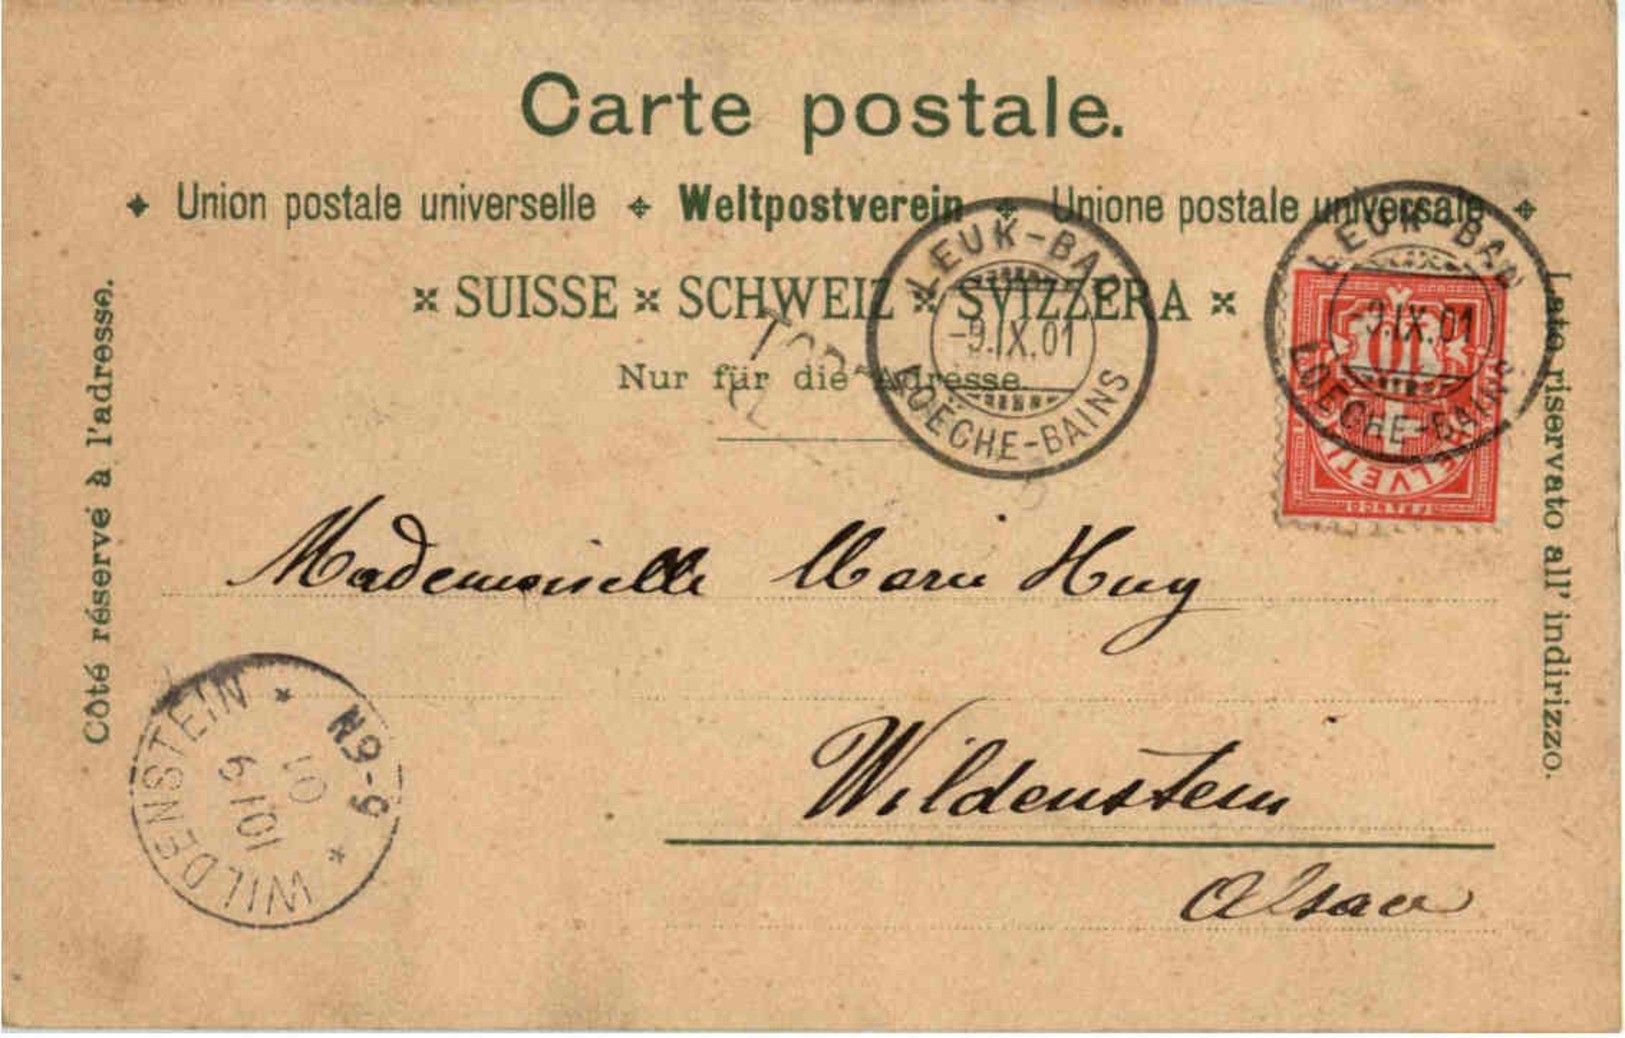 Carte postale.
Union postale universelle Weltpostverein Unione postale universale
SUISSE SCHWEIZ SVIZZERA
Nur für die Adresse.
LEUK-BAD
-9.IX.01
LOECHE-BAINS
LEUK-BAD
-9.IX.01
LOECHE-BAINS
10
HELVETIA
FRANCO
Côté réservé à l'adresse.
Lato riservato all' indirizzo.
Mademoiselle Marie Hug
Wildenstein
Alsace
WILDENSTEIN
10/9
01